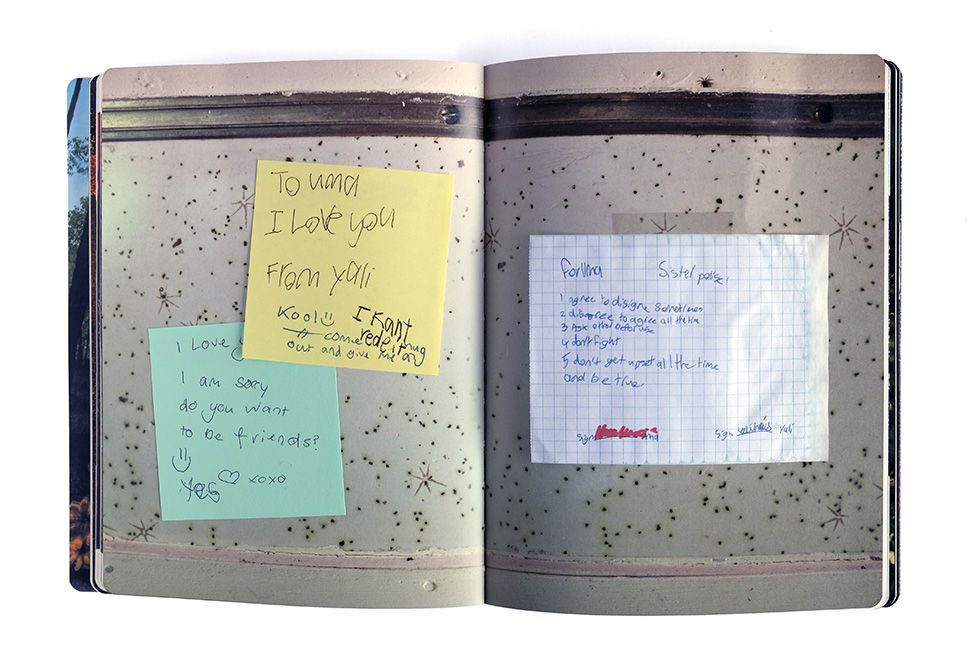 To uma
I Love you
From yali
Kool
I Kant
red it
come
hug
out and give me an
I Love
I am sorry
do you want
to be friends?
Yes
xoxo
for Uma
Sister
1 agree to disigre sometimes
2 disagree to agree all the time
3 Ask
4 don't fight
5 don't get upset all the time
and be true
sign
ma
sign
yali